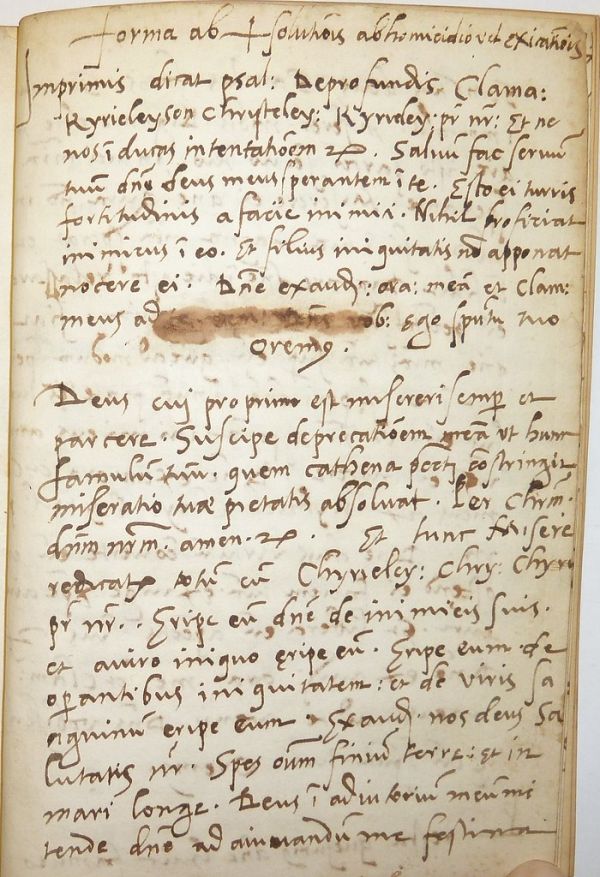 forma ab solutiōis ab homicidio vel
Inprimis dicat psal: Deprofundis Clama:
Kyrieleyson Christeley: Kyrieley: pr̄ nr̄: Et ne
nos ī ducas in tentatiōem. Saluū fac seruū
tuū dn̄e deus meus sperantem ī te. Esto ei turris
fortitudinis a facie inimici. Nihil proficiat
inimicus ī eo. Et filius iniquitatis nō apponat
nocere ei. Dn̄e exaud: ora: meā et Clam:
meus ad ob: ego spūtu tuo
Oremus.
Deus cui proprium est misereri semp̄ et
parcere. Suscipe deprecatiōem meā ut hunc
famulum tuū. quem cathena cōstringit
miseratio tuæ pietatis absoluat. Per Chrm̄.
dn̄m nrm̄. amen. Et tunc
eū Chyrieley: Chry: Chyri
pr̄ nr̄. Eripe eū dn̄e de inimicis suis.
et a viro iniquo eripe eū. Eripe eum de
operantibus iniquitatem: et de viris sa
nguinum eripe eum. Exaud. nos deus sa
lutaris nr̄. Spes oīum finium terre: et in
mari longe. Deus ī adiutorium meum in
tende dn̄e ad aiuuandū me festina